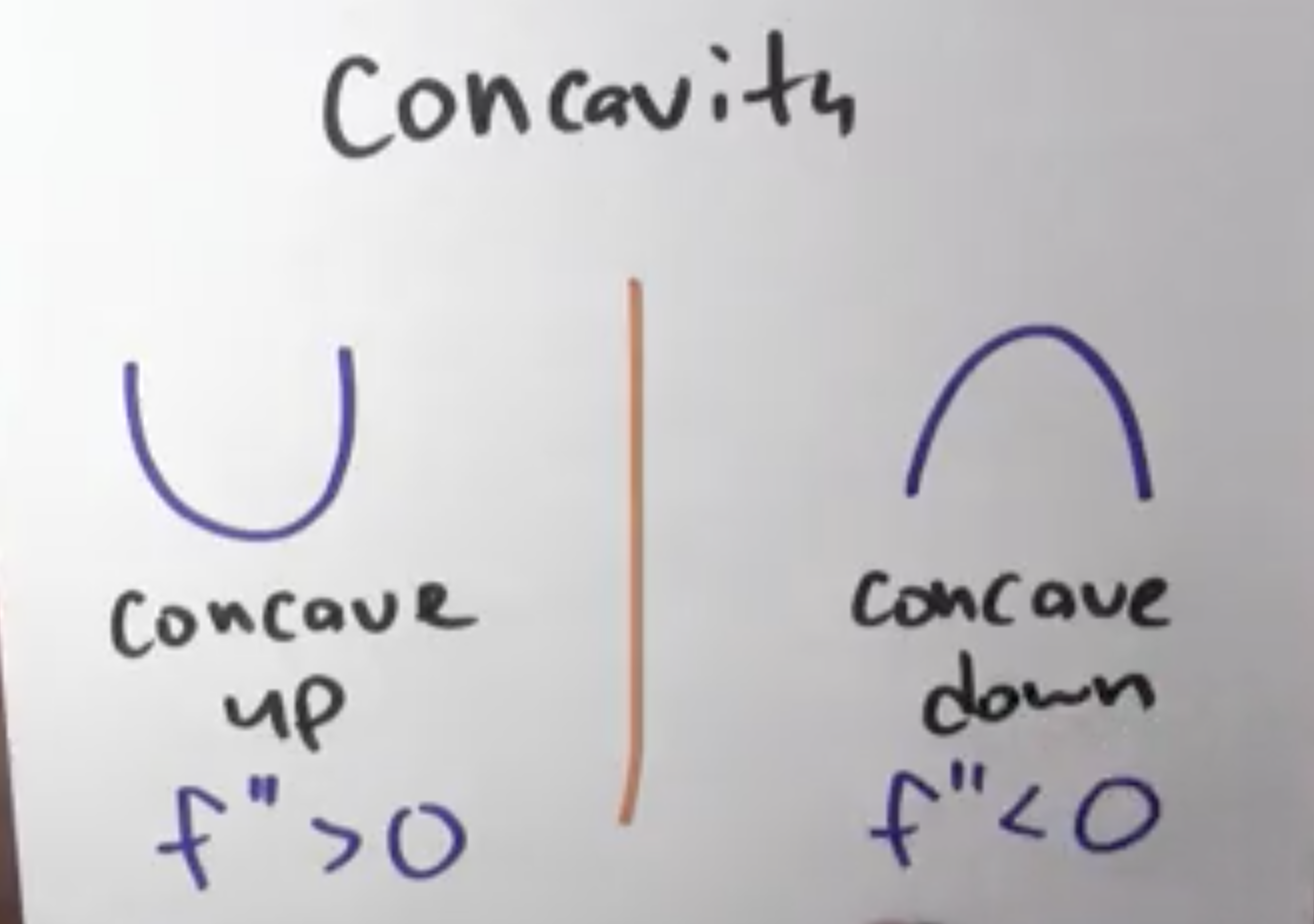 Concavity
Concave
up
f" > 0
Concave
down
f" < 0